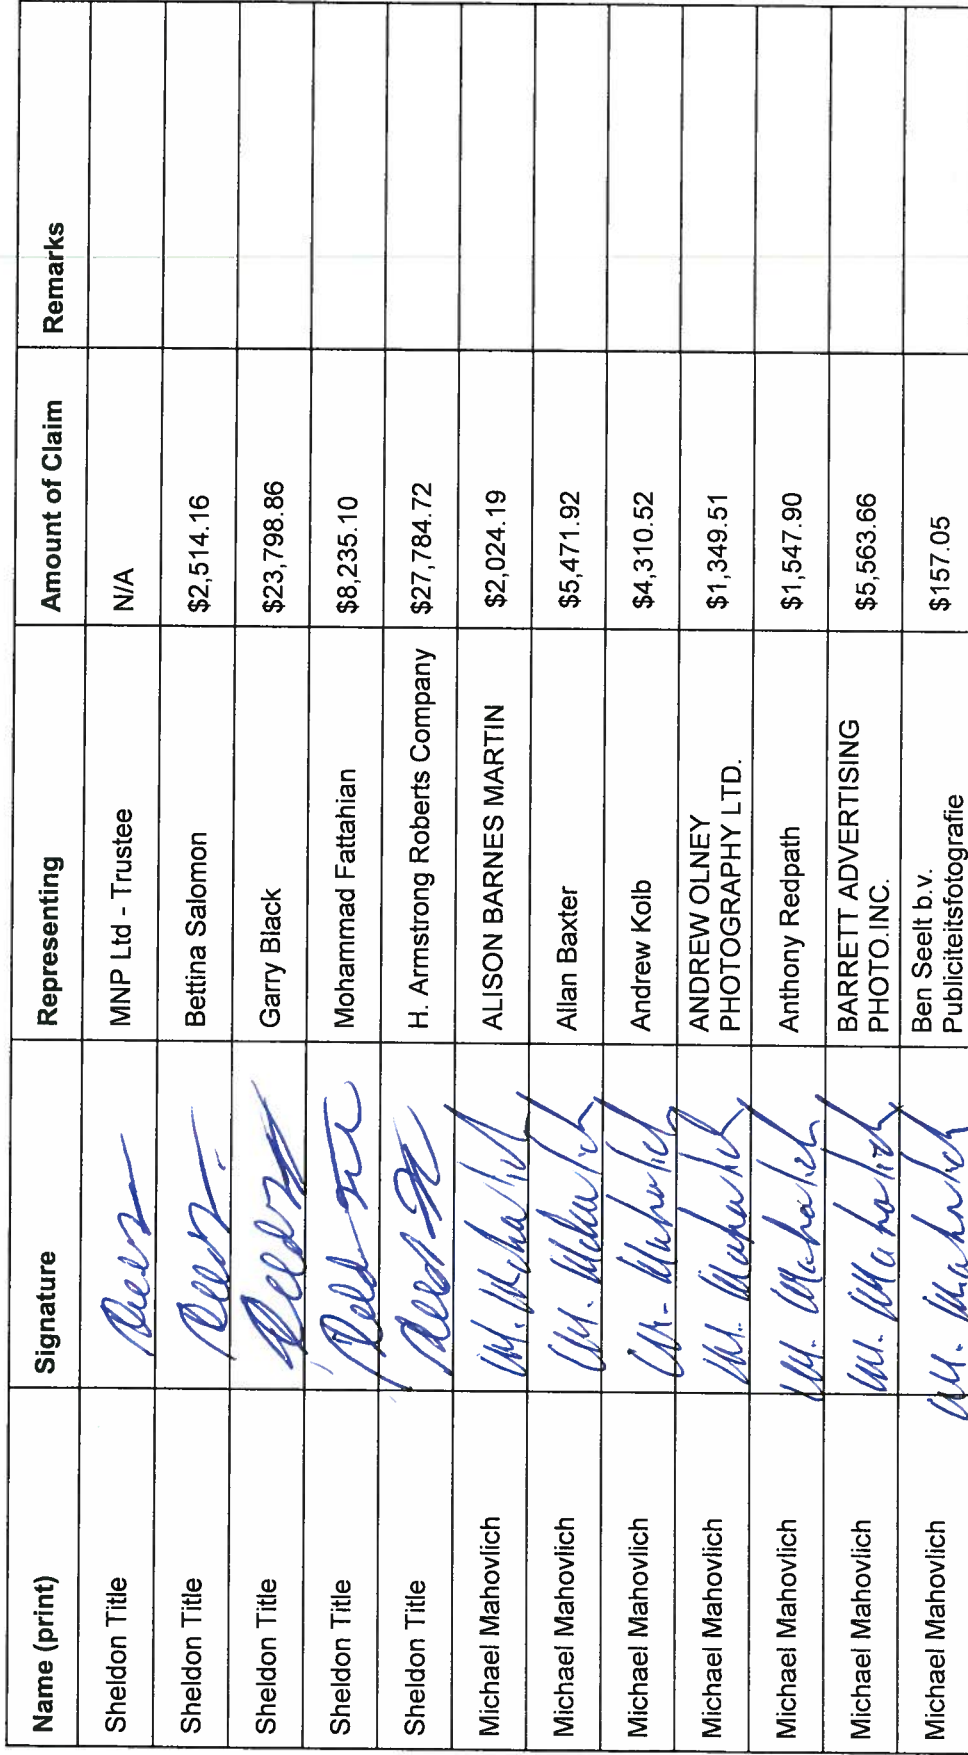 Name (print) Signature Representing Amount of Claim Remarks
Sheldon Title MNP Ltd - Trustee N/A
Sheldon Title Bettina Salomon $2,514.16
Sheldon Title Garry Black $23,798.86
Sheldon Title Mohammad Fattahian $8,235.10
Sheldon Title H. Armstrong Roberts Company $27,784.72
Michael Mahovlich M. Mahovlich ALISON BARNES MARTIN $2,024.19
Michael Mahovlich M. Mahovlich Allan Baxter $5,471.92
Michael Mahovlich M. Mahovlich Andrew Kolb $4,310.52
Michael Mahovlich M. Mahovlich ANDREW OLNEY
PHOTOGRAPHY LTD. $1,349.51
Michael Mahovlich M. Mahovlich Anthony Redpath $1,547.90
Michael Mahovlich M. Mahovlich BARRETT ADVERTISING
PHOTO.INC. $5,563.66
Michael Mahovlich M. Mahovlich Ben Seelt b.v.
Publiciteitsfotografie $157.05